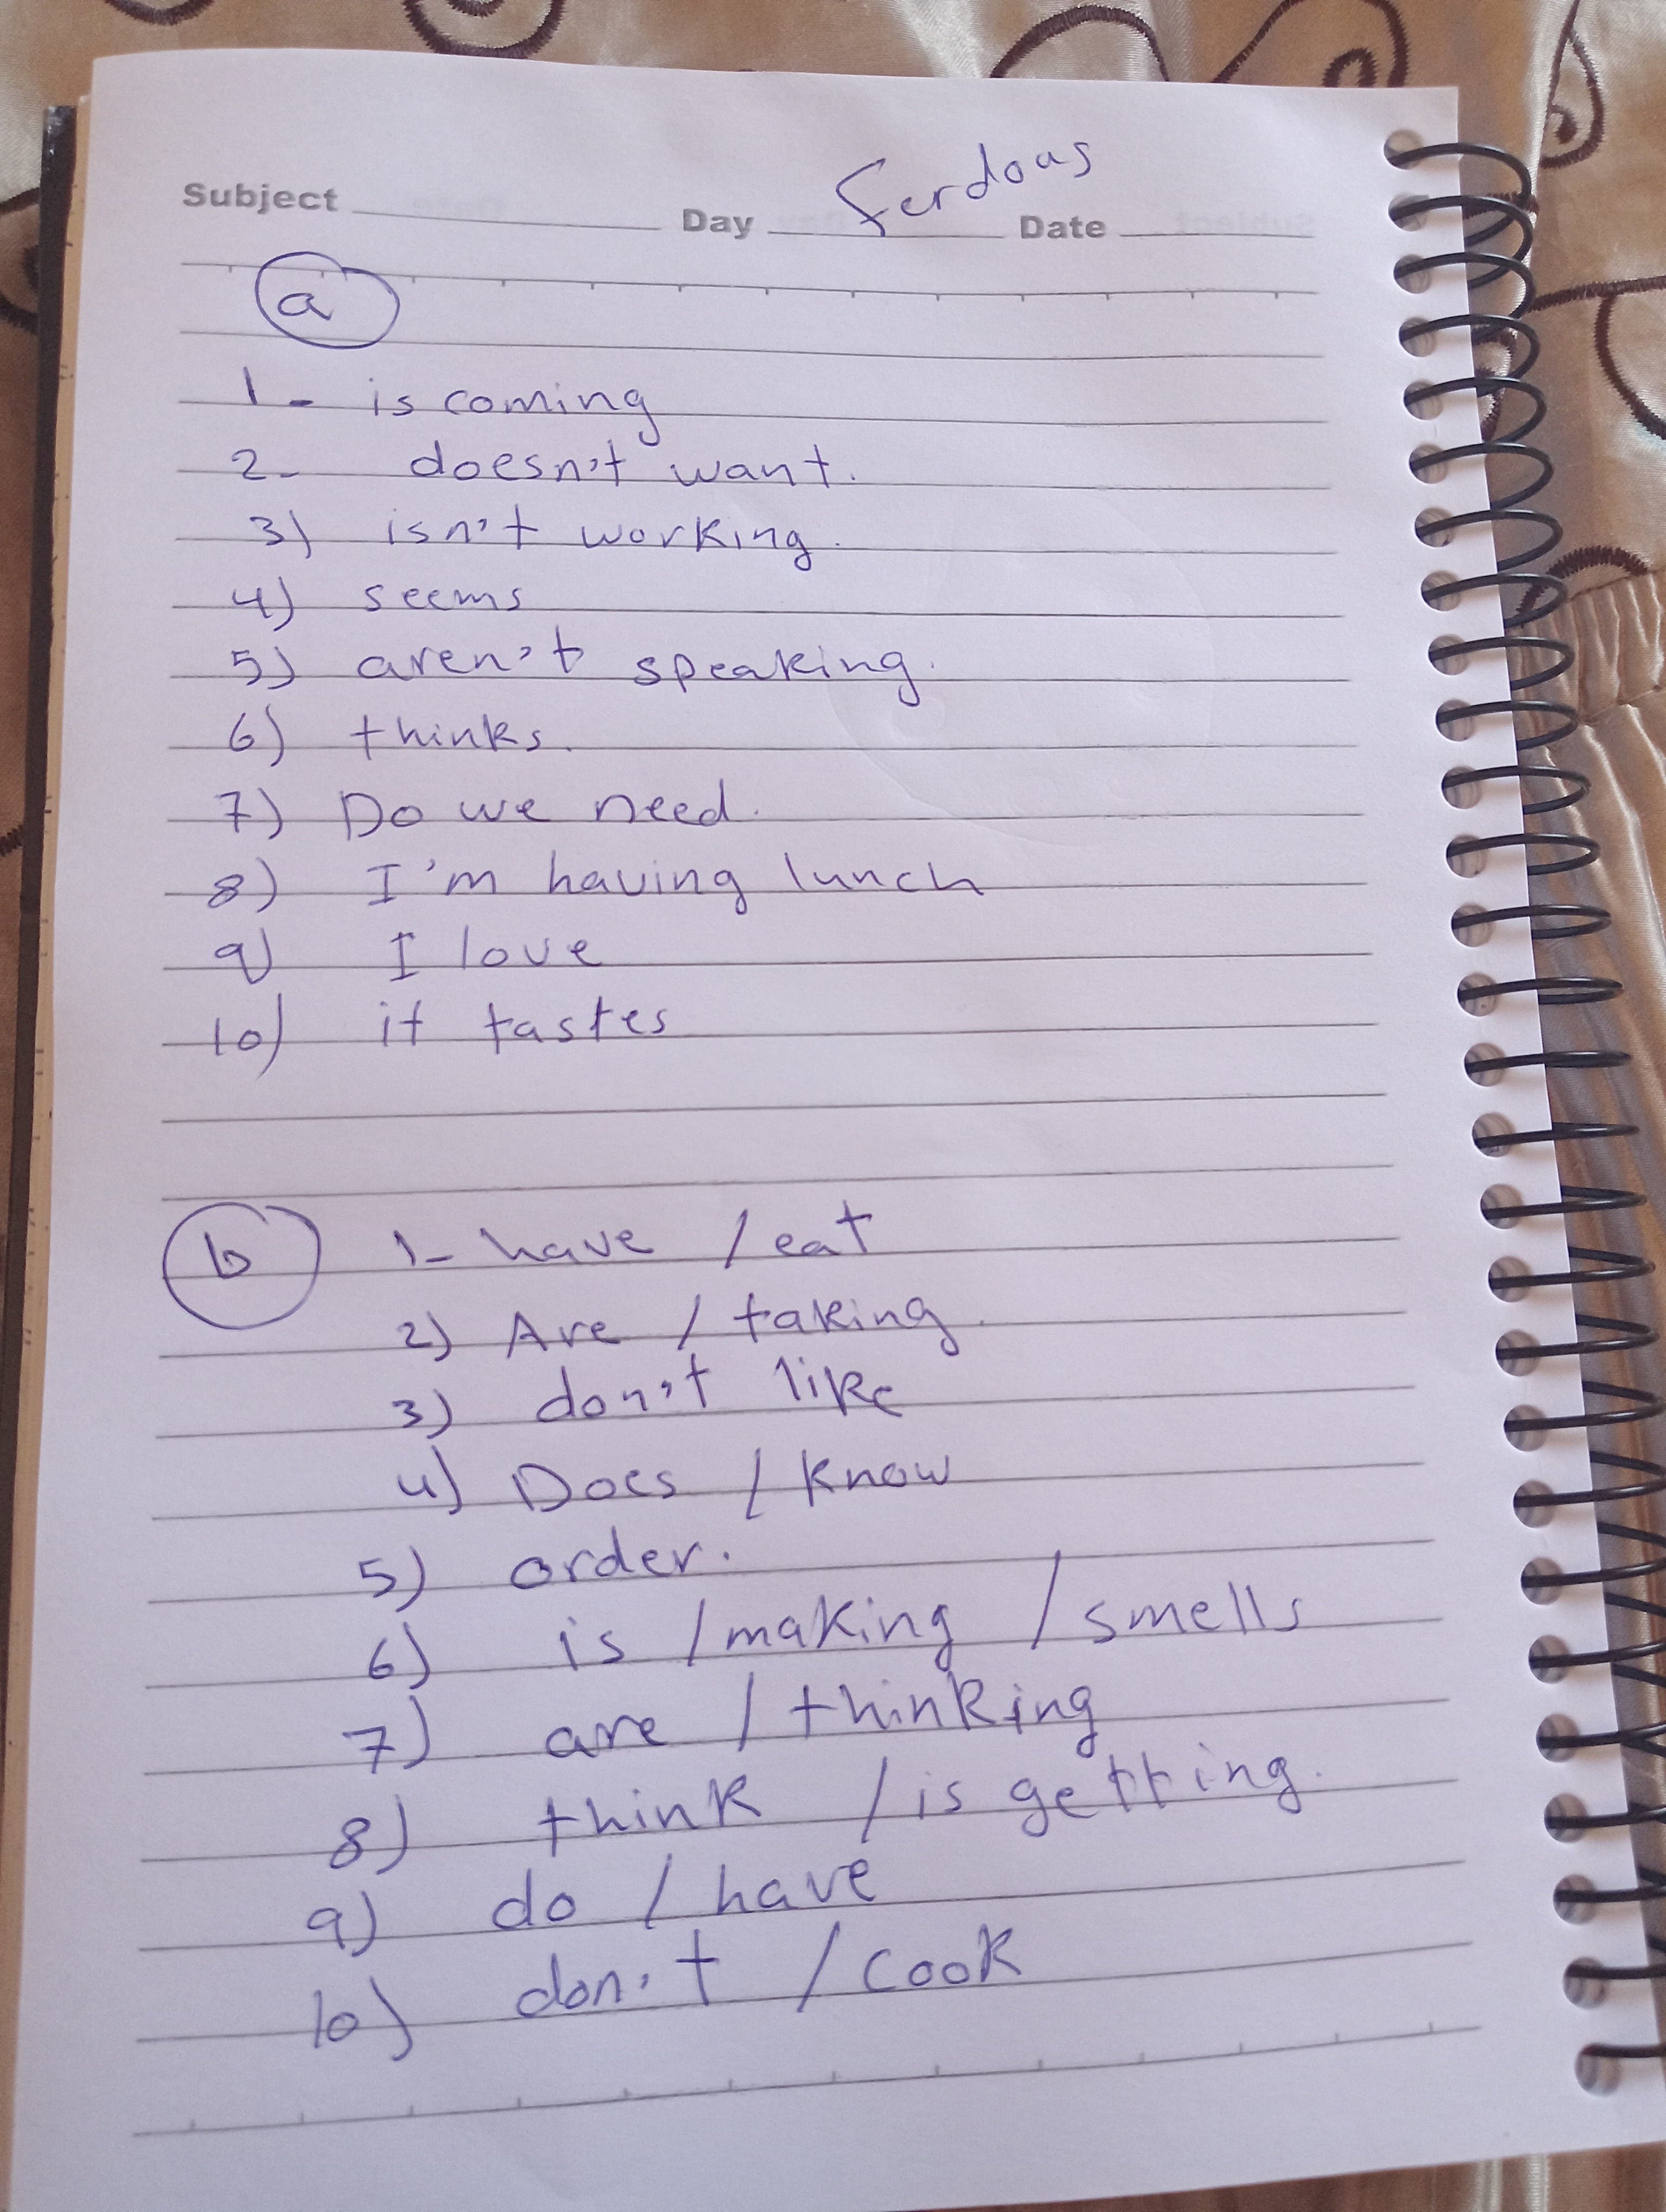 Ferdous
Subject Day Date
a
1- is coming
2- doesn't want.
3) isn't working.
4) seems
5) aren't speaking.
6) thinks.
7) Do we need.
8) I'm having lunch
9) I love
10) it tastes
b 1- have / eat
2) Are / taking.
3) don't like
4) Does / know
5) order.
6) is / making / smells
7) are / thinking
8) think / is getting.
9) do / have
10) don't / cook